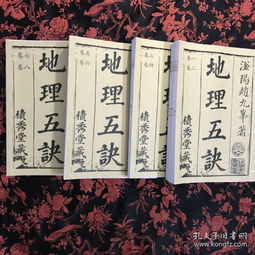 卷七
卷八
地理五訣
積秀堂藏
卷五
卷六
地理五訣
積秀堂藏
卷三
卷四
地理五訣
積秀堂藏
卷一
卷二
地理五訣
滏陽趙九峯著
積秀堂藏
孔夫子旧书网